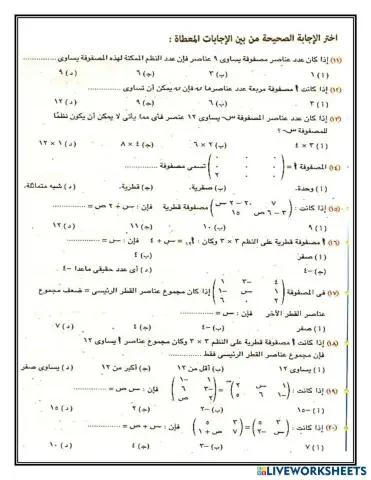 اختر الإجابة الصحيحة من بين الإجابات المعطاة :
(١١) إذا كان عدد عناصر مصفوفة يساوى ٩ عناصر فإن عدد النظم الممكنة لهذه المصفوفة يساوى
(أ) ١ (ب) ٣ (ج) ٦ (د) ٩
(١٢) إذا كانت مصفوفة مربعة عدد عناصرها ن فإن ن يمكن أن تساوى
(أ) ٣ (ب) ٦ (ج) ٩ (د) ١٢
(١٣) إذا كان عدد عناصر المصفوفة س يساوى ١٢ عنصر فأى مما يأتى لا يمكن أن يكون نظمًا
للمصفوفة س ؟
(أ) ٣ × ٤ (ب) ٢ × ٦ (ج) ٤ × ٨ (د) ١ × ١٢
(١٤) المصفوفة تسمى مصفوفة
(أ) وحدة. (ب) صفرية. (ج) قطرية. (د) شبه متماثلة.
(١٥) إذا كانت : مصفوفة قطرية فإن : س + ٢ ص =
(أ) ٩ (ب) ١٠ (ج) ١١ (د) ١٢
(١٦) مصفوفة قطرية على النظم ٣ × ٣ وكان : = س + ٤ فإن : س =
(أ) صفر (ب) ٤
(ج) -٤ (د) أى عدد حقيقى ماعدا -٤
(١٧) فى المصفوفة إذا كان مجموع عناصر القطر الرئيسى = ضعف مجموع
عناصر القطر الآخر فإن : س =
(أ) صفر (ب) -٤ (ج) ٤ (د) ٧
(١٨) إذا كانت مصفوفة قطرية على النظم ٣ × ٣ وكان مجموع عناصر يساوى ١٢
فإن مجموع عناصر القطر الرئيسى فقط
(أ) يساوى ١٢ (ب) أقل من ١٢ (ج) أكبر من ١٢ (د) يساوى صفر
(١٩) إذا كانت : فإن : س ص =
(أ) -١٥ (ب) -٢ (ج) ٢ (د) ١٥
(٢٠) إذا كانت : فإن : س + ص =
(أ) ٧ (ب) -٣ (ج) ٤ (د) ١٠
LIVEWORKSHEETS